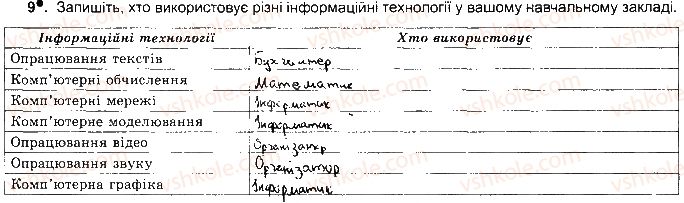 9•. Запишіть, хто використовує різні інформаційні технології у вашому навчальному закладі.
Інформаційні технології Хто використовує
Опрацювання текстів Бухгалтер
Комп'ютерні обчислення Математик
Комп'ютерні мережі Інформатик
Комп'ютерне моделювання Інформатик
Опрацювання відео Організатор
Опрацювання звуку Організатор
Комп'ютерна графіка Інформатик